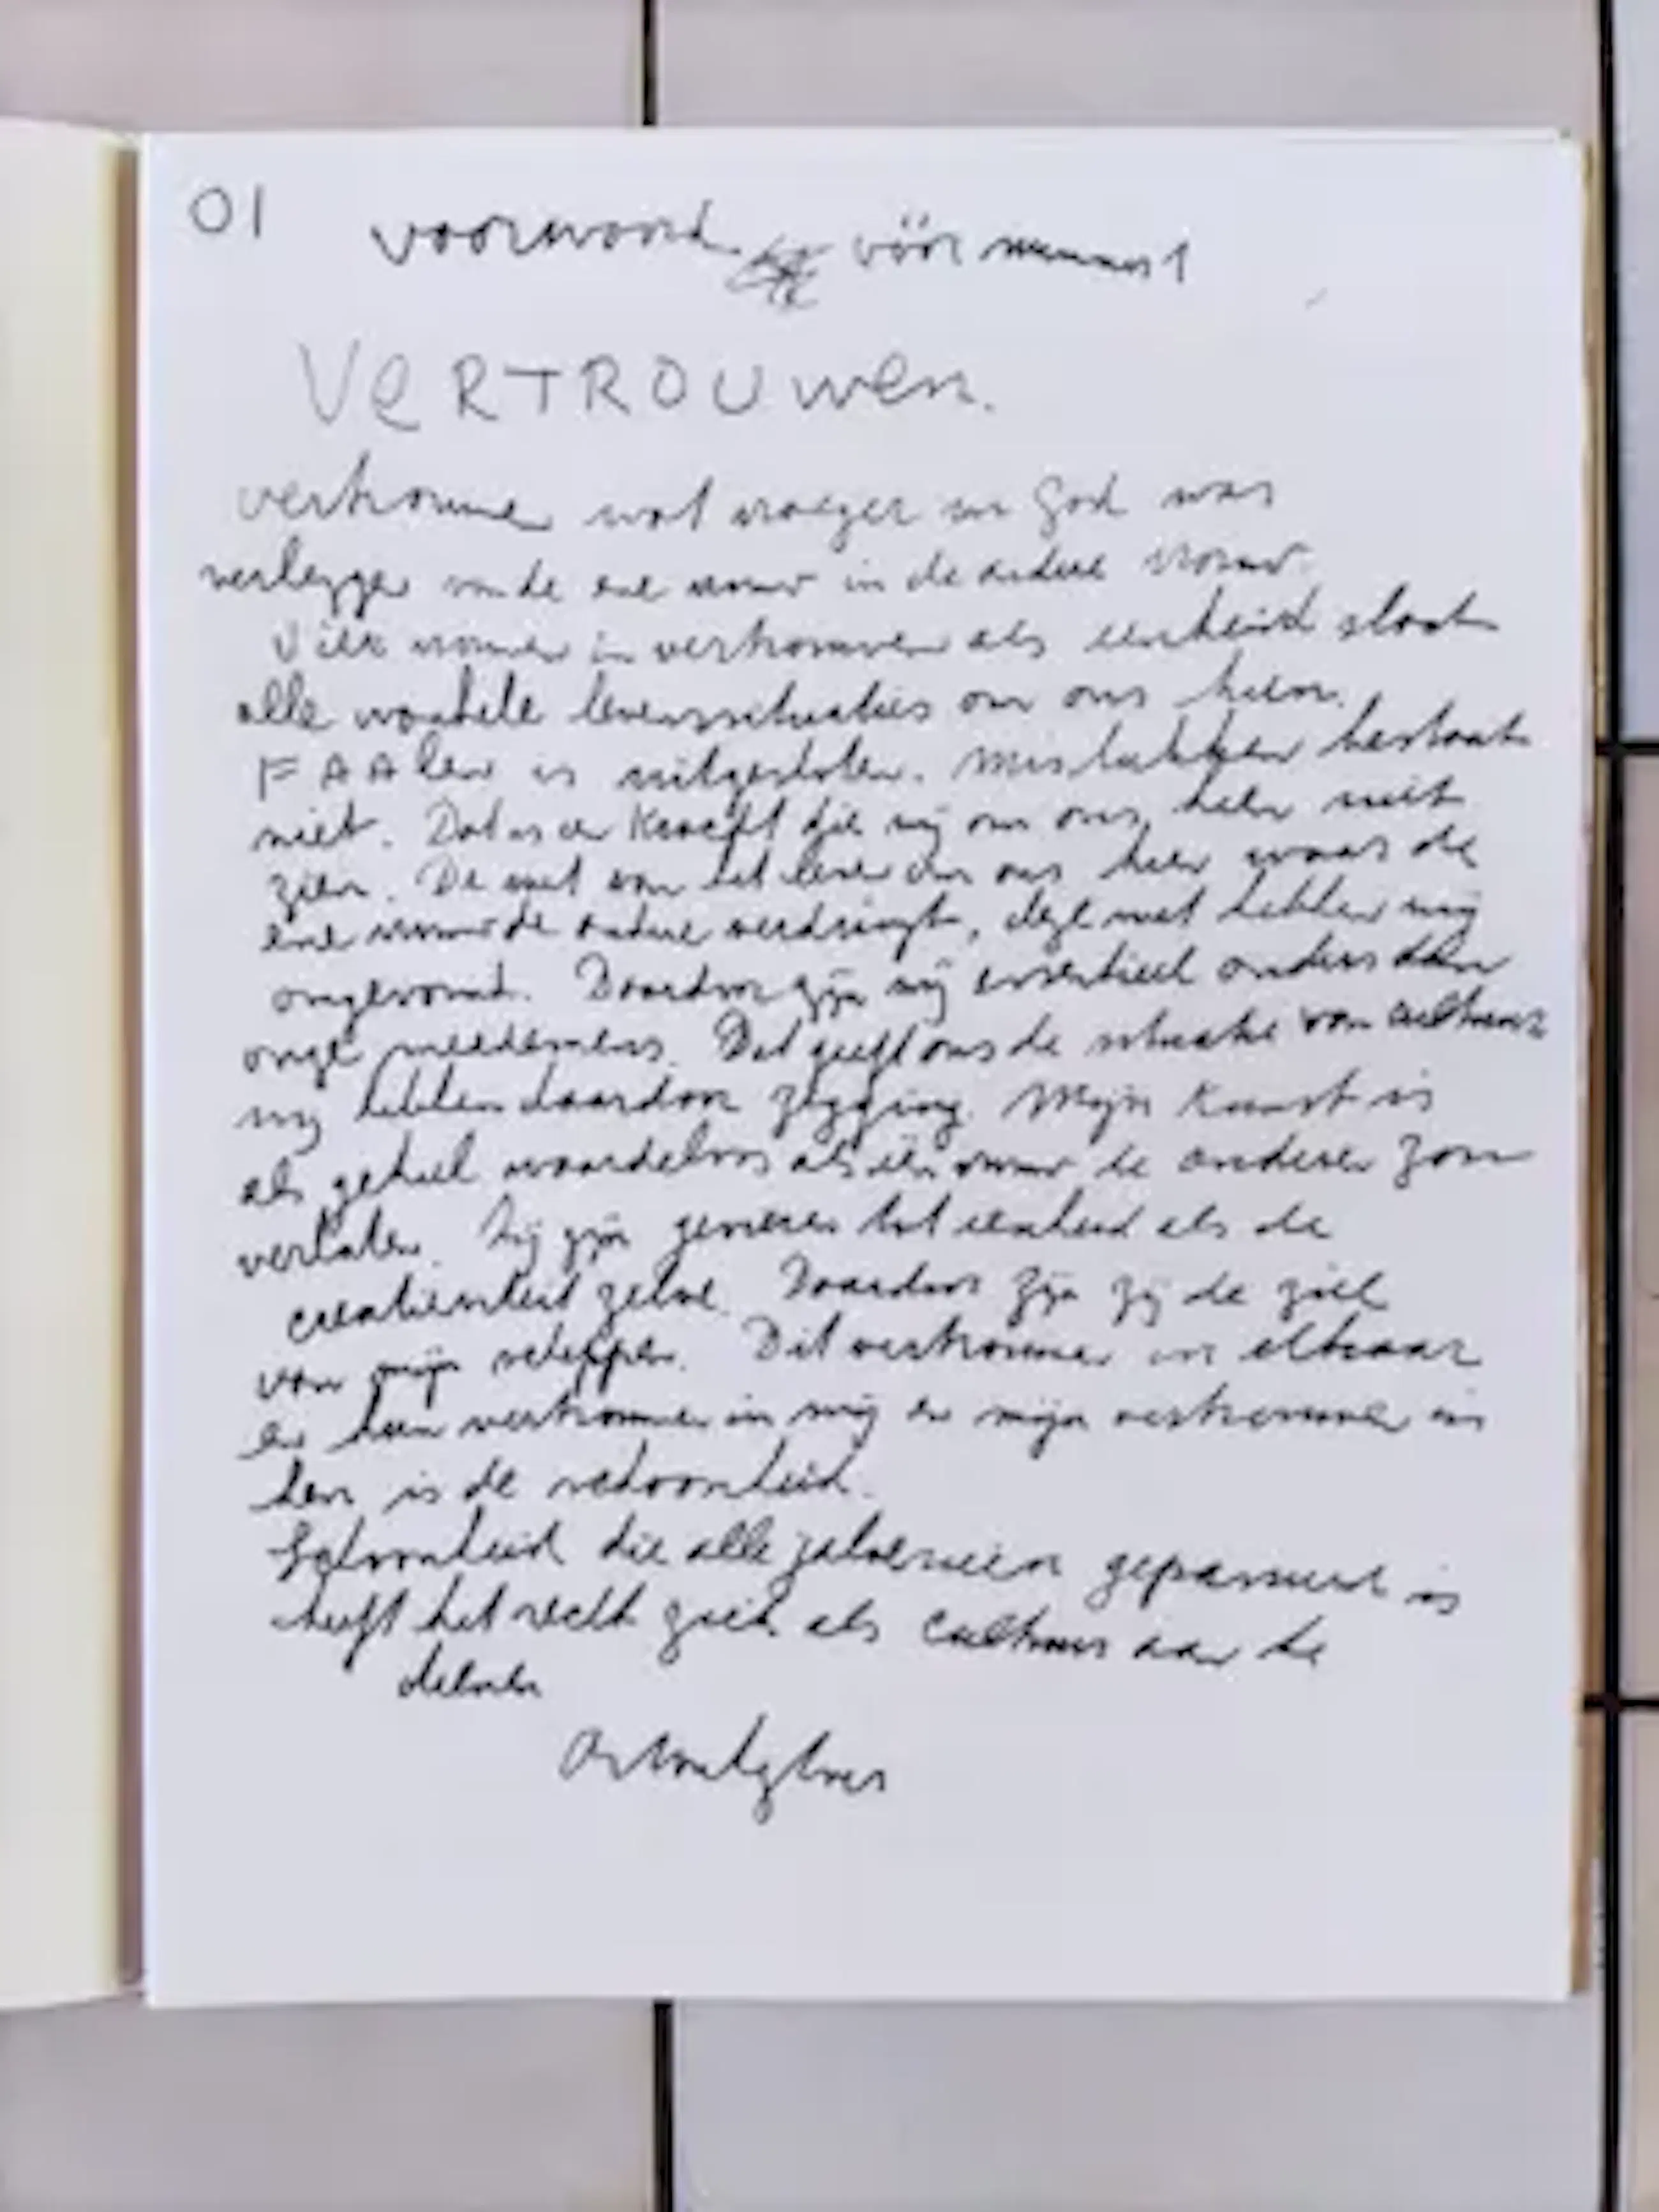 01
voorwoord vöör nummer 1
VeRTROUwen.
vertrouwen wat vroeger in God was
verleggen van de ene vrouw in de andere vrouw.
Vier vrouwen in vertrouwen als eenheid slaat
alle wankele levenssituaties om ons heen.
FAAlen is uitgesloten. Mislukken bestaat
niet. Dat is een Kracht die wij om ons heen niet
zien. De wet van het leven om ons heen waar de
ene vrouw de andere verdringt, deze wet hebben wij
omgevormd. Daardoor zijn wij essentieel anders dan
onze medemens. Dat geeft ons de situatie van cultuur
wij hebben daardoor zegging. Mijn Kunst is
als geheel waardeloos als één vrouw de anderen zou
verlaten. Zij zijn geweven tot eenheid als de
creativiteit zelve. Daardoor zijn zij de ziel
van mijn scheppen. Dit vertrouwen in elkaar
en hun vertrouwen in mij en mijn vertrouwen in
hen is de schoonheid.
Schoonheid die alle jaloezieën gepasseerd is
heeft het recht zich als cultuur aan te
dienen